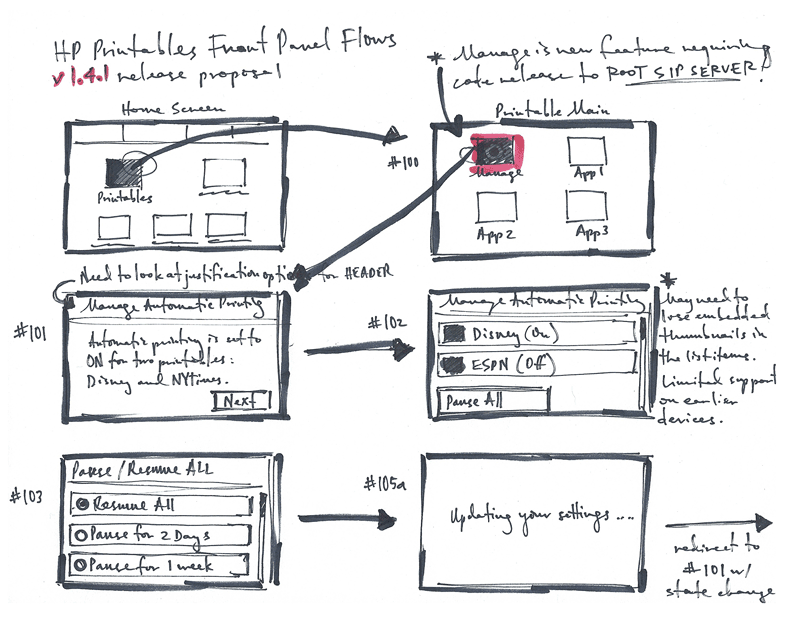 HP Printables Front Panel Flows
v1.4.1 release proposal
* Manage is new feature requiring
code release to ROOT SIP SERVER!
Home Screen
Printables
#100
Printable Main
Manage
App1
App2
App3
Need to look at justification options for HEADER
#101
Manage Automatic Printing
Automatic printing is set to
ON for two printables:
Disney and NYtimes.
Next
#102
Manage Automatic Printing
Disney (On)
ESPN (Off)
Pause All
*
May need to
lose embedded
thumbnails in
the list items.
Limited support
on earlier
devices.
#103
Pause/Resume ALL
Resume All
Pause for 2 Days
Pause for 1 week
#105a
Updating your settings ....
redirect to
#101 w/
state change